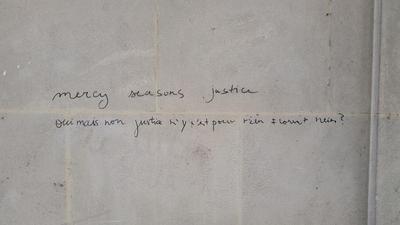 mercy seasons justice
oui mais non justice n'y est pour rien